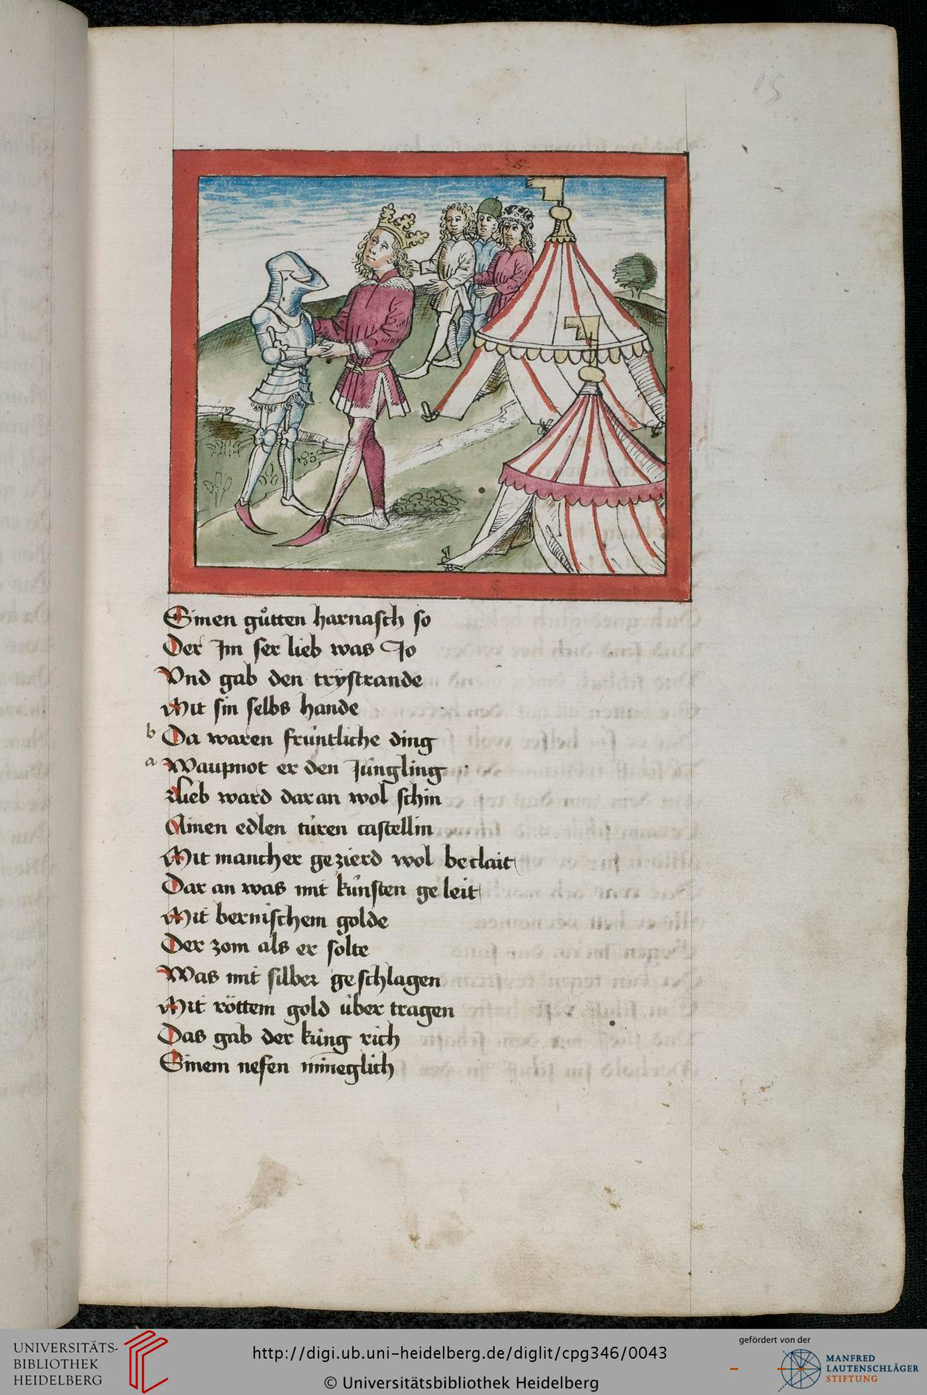 15
Sinen gůtten harnasch so
Der Im ser lieb was Jo
Vnd gab den trÿstrande
Mit sin selbs hande
b Da waren frúntliche ding
a Waupnot er den Júngling
Lieb ward dar an wol schin
Ainen edlen túren castellin
Mit mancher gezierd wol beclait
Dar an was mit kúnsten geleit
Mit bernischem golde
Der zom als er solte
Was mit silber geschlagen
Mit röttem gold über tragen
Das gab der kúng rich
Sinem nefen mīneglich
UNIVERSITÄTS-
BIBLIOTHEK
HEIDELBERG
http://digi.ub.uni-heidelberg.de/diglit/cpg346/0043
© Universitätsbibliothek Heidelberg
gefördert von der
MANFRED
LAUTENSCHLÄGER
STIFTUNG